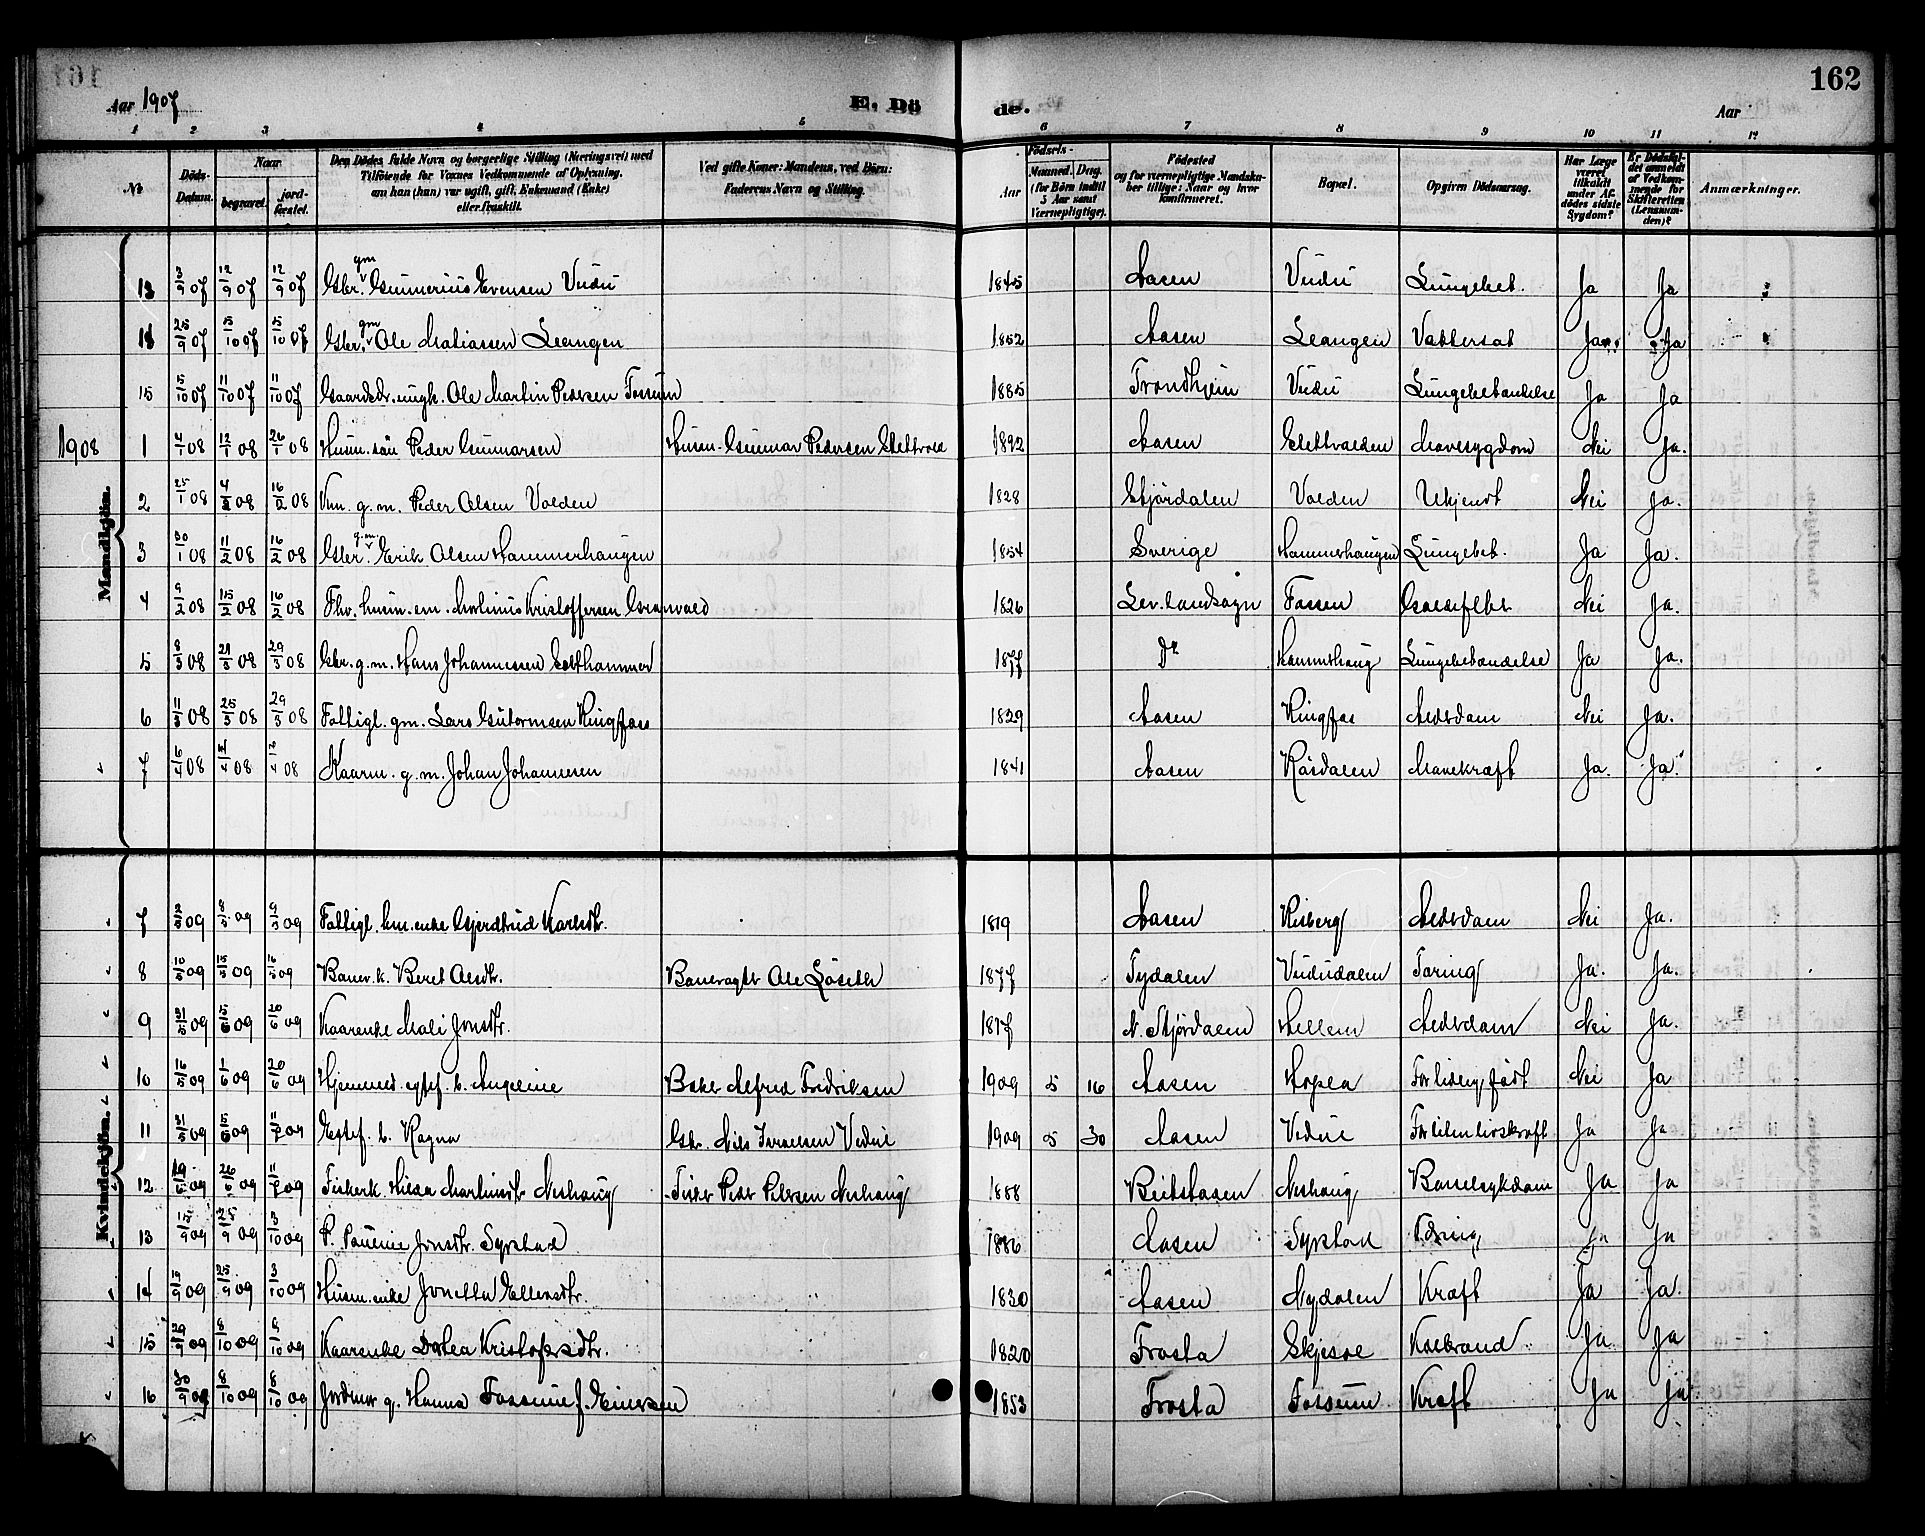 Aar 1907 E. Dö
de. Aar 162
1 2 3 4 5 6 7 8 9 10 11 12
№ Döds-Datum. Naar begravet. jord-fæstet. Den Dödes fulde Navn og borgerlige Stilling (Næringsvei) med Tilföiende for Voxnes Vedkommende af Oplysning, om han (hun) var ugift, gift, Enkemand (Enke) eller fraskilt. Ved gifte Koner: Mandens, ved Börn: Faderens Navn og Stilling. Födsels- Aar Maaned. Dag. (for Börn indtil 5 Aar samt Værnepligtige). Födested og for værnepligtige Mandskaber tillige: Naar og hvor konfirmeret. Bopæl. Opgiven Dödsaarsag. Har Læge været tilkaldt under Afdödes sidste Sygdom? Er Dödsfaldet anmeldt af Vedkommende for Skifteretten (Lensmanden)? Anmærkninger.
Mandkjön.
13 3/9 07 12/9 07 12/9 07 Gbr. gm Gunnerius Evensen Vudu 1845 Aasen Vudu Lungebet. Ja Ja
14 25/9 07 5/10 07 5/10 07 Gbr. gm Ole Mathiassen Leangen 1852 Aasen Leangen Vattersot Ja Ja
15 5/10 07 11/10 07 11/10 07 Gaardbr. ungk. Ole Martin Pedersen Fossum 1885 Trondhjem Vudu Lungebetændelse Ja Ja
1908 1 4/1 08 12/1 08 26/1 08 Husm. sön Peder Gunnarsen Husm. Gunnar Pedersen Slettvold 1892 Aasen Slettvolden Mavesygdom Nei Ja.
2 25/1 08 4/2 08 16/2 08 Km. g.m. Peder Olsen Volden 1828 Stjördalen Volden Ukjendt Nei Ja.
3 30/1 08 11/2 08 16/2 08 Gbr. g.m. Erik Olsen Hammerhaugen 1854 Sverige Hammerhaugen Lungebet. Ja Ja.
4 9/2 08 15/2 08 16/2 08 Fhv. husm. em. Martinus Kristoffersen Granvold 1826 Lev. landsogn Fossen Nei Ja.
5 8/3 08 21/3 08 29/3 08 Gbr. g.m. Hans Johannessen 1877 Do Lungebetændelse Ja Ja.
6 11/3 08 25/3 08 29/3 08 Fattigl. gm. Lars Guttormsen Ringfos 1829 Aasen Ringfos Alderdom Nei Ja.
7 6/4 08 /4 08 /4 08 Kaarm. g.m. Johan Johannesen 1841 Aasen Rösdalen Mavekræft Ja. Ja.
Kvindekjön.
7 2/5 09 8/5 09 9/5 09 Fattigl. km. enke Gjerdtrud Karlsdtr. 1819 Aasen Risberg Alderdom Nei Ja.
8 10/5 09 15/5 09 16/5 09 Banev. k. Beret Olsdtr. Banevogter Ole Löseth 1877 Tydalen Vududalen Tæring Ja. Ja.
9 31/5 09 5/6 09 20/6 09 Kaarenke Mali Jonsdtr. 1817 N. Stjördalen Hellem Alderdom Nei Ja.
10 16/5 09 1/6 09 26/6 09 Hjemmed. egtef. b. Angeline Baker Alfred Fredriksen 1909 5 16 Aasen Hopla For tidlig födt Nei Ja
11 31/5 09 5/6 09 11/7 09 Egtef. b. Ragna Gbr. Nils Israelsen Vudu 1909 5 30 Aasen Vudu For liten livskraft Ja Ja
12 19/6 09 26/6 09 11/7 09 Fiskerk. Hilda Martinsdtr Neshaug Fisker Peder Petersen Neshaug 1888 Beitstaden Neshaug Barselsykdom Ja Ja
13 /9 09 /9 09 3/10 09 P. Pauline Jonsdtr. Syrstad 1886 Aasen Syrstad Tæring Ja Ja
14 15/9 09 25/9 09 3/10 09 Husm. enke Jonetta Ellensdtr. 1830 Aasen Nydalen Kræft Ja Ja.
15 29/9 09 8/10 09 9/10 09 Kaarenke Dortea Kristofersdtr. 1820 Frosta Skjesoe Koldbrand Ja. Ja
16 30/9 09 8/10 09 8/10 09 Jordmor g. Hanna Fossum f. Einersen 1853 Frosta Fossum Kræft Ja Ja